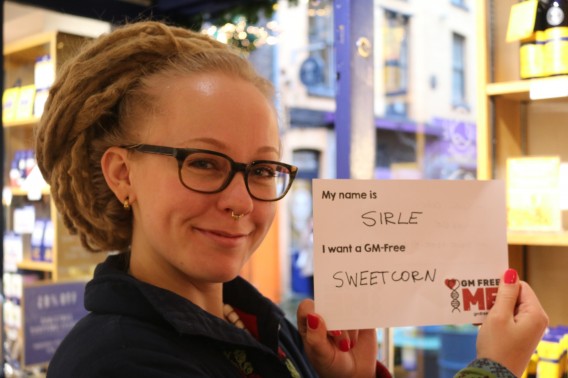 My name is
SIRLE
I want a GM-Free
SWEETCORN
GM FREE
ME
20% OFF